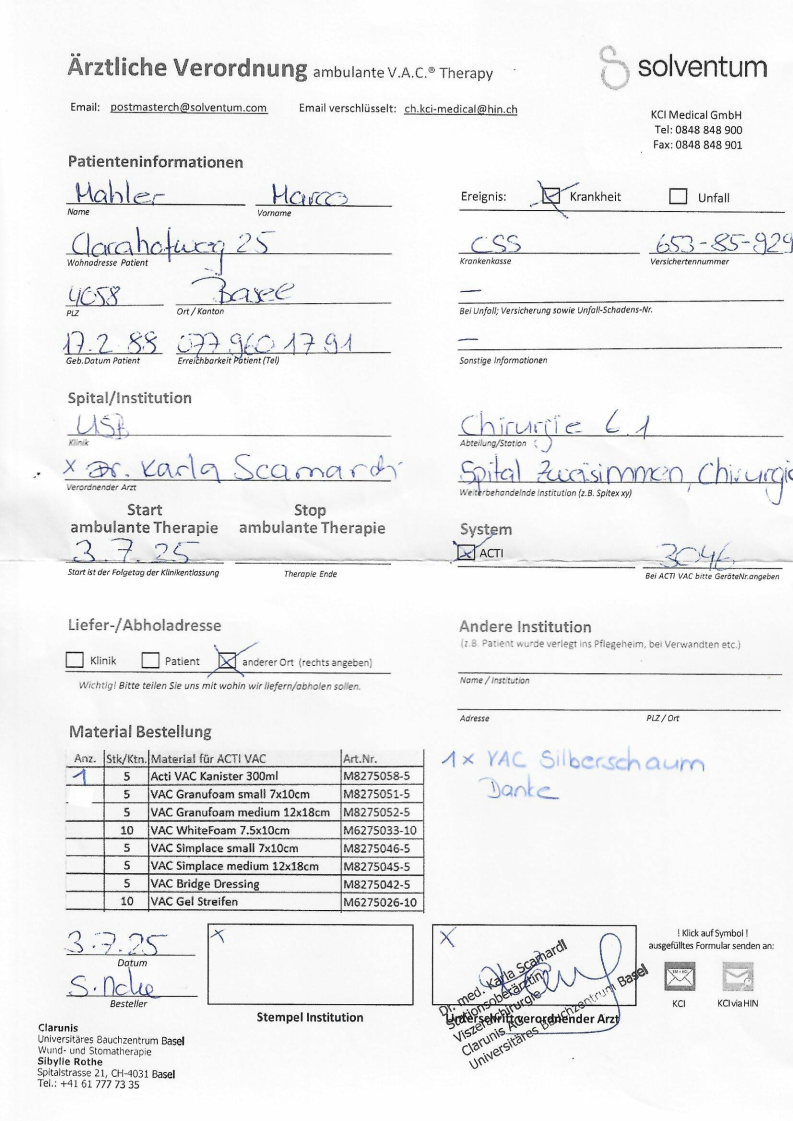 Ärztliche Verordnung ambulante V.A.C.® Therapy
solventum
Email: postmasterch@solventum.com Email verschlüsselt: ch.kci-medical@hin.ch
KCI Medical GmbH
Tel: 0848 848 900
Fax: 0848 848 901
Patienteninformationen
Mahler Marco
Name Vorname
Ereignis: Krankheit Unfall
Clarahofweg 25
Wohnadresse Patient
CSS 653-85-929
Krankenkasse Versichertennummer
4058 Basel
PLZ Ort / Kanton
–
Bei Unfall; Versicherung sowie Unfall-Schadens-Nr.
17.2 88 077 960 17 91
Geb.Datum Patient Erreichbarkeit Patient (Tel)
–
Sonstige Informationen
Spital/Institution
USB
Klinik
Chirurgie 6.1
Abteilung/Station
x Dr. Karla Scamardi
Verordnender Arzt
Spital Zweisimmen, Chirurgie
Weiterbehandelnde Institution (z.B. Spitex xy)
Start ambulante Therapie
Stop ambulante Therapie
System
3.7.25
Start ist der Folgetag der Klinikentlassung Therapie Ende
ACTI 3046
Bei ACTI VAC bitte GeräteNr.angeben
Liefer-/Abholadresse
Klinik Patient anderer Ort (rechts angeben)
Wichtig! Bitte teilen Sie uns mit wohin wir liefern/abholen sollen.
Andere Institution
(z.B. Patient wurde verlegt ins Pflegeheim, bei Verwandten etc.)
Name / Institution
Adresse PLZ / Ort
Material Bestellung
Anz. Stk/Ktn. Material für ACTI VAC Art.Nr.
1 5 Acti VAC Kanister 300ml M8275058-5
5 VAC Granufoam small 7x10cm M8275051-5
5 VAC Granufoam medium 12x18cm M8275052-5
10 VAC WhiteFoam 7.5x10cm M6275033-10
5 VAC Simplace small 7x10cm M8275046-5
5 VAC Simplace medium 12x18cm M8275045-5
5 VAC Bridge Dressing M8275042-5
10 VAC Gel Streifen M6275026-10
1x VAC Silberschaum
Danke
3.7.25
Datum
Besteller
x
Stempel Institution
x
Dr. med. Karla Scamardi
Stationsoberärztin
Viszeralchirurgie
Clarunis AG
Universitäres Bauchzentrum Basel
Unterschrift verordnender Arzt
! Klick auf Symbol !
ausgefülltes Formular senden an:
KCI KCI via HIN
Clarunis
Universitäres Bauchzentrum Basel
Wund- und Stomatherapie
Sibylle Rothe
Spitalstrasse 21, CH-4031 Basel
Tel.: +41 61 777 73 35